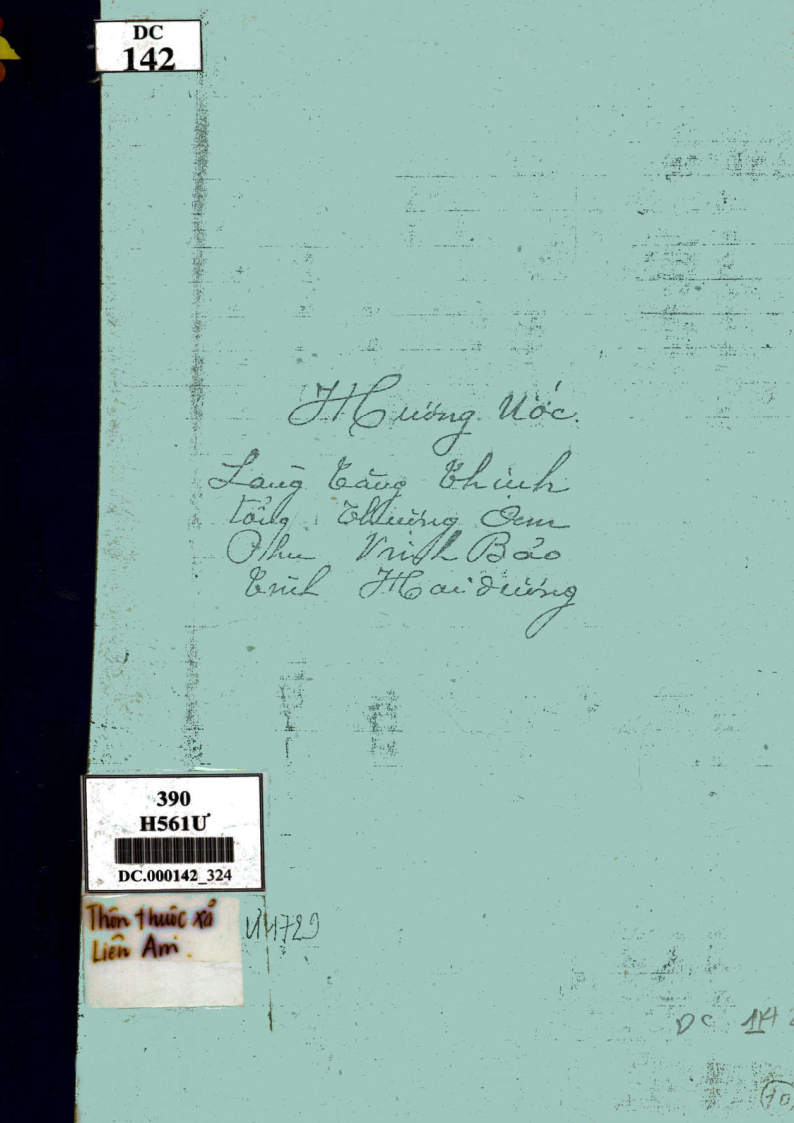 DC
142
Hương Ước.
Làng Tăng Thịnh
Tổng Thượng Am
Phủ Vĩnh Bảo
Tỉnh Hải dương
390
H561Ư
DC.000142_324
Thôn thuộc xã
Liên Am
DC